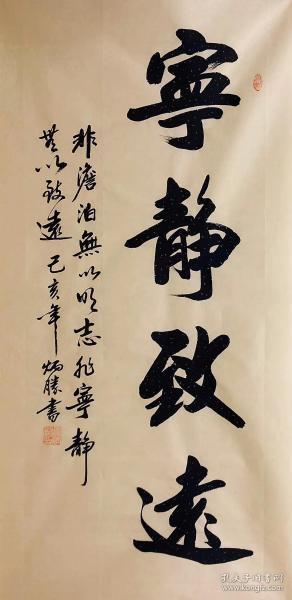 寧靜致遠
非澹泊無以明志非寧靜
無以致遠 己亥年 炳勝書
孔夫子旧书网
www.kongfz.com